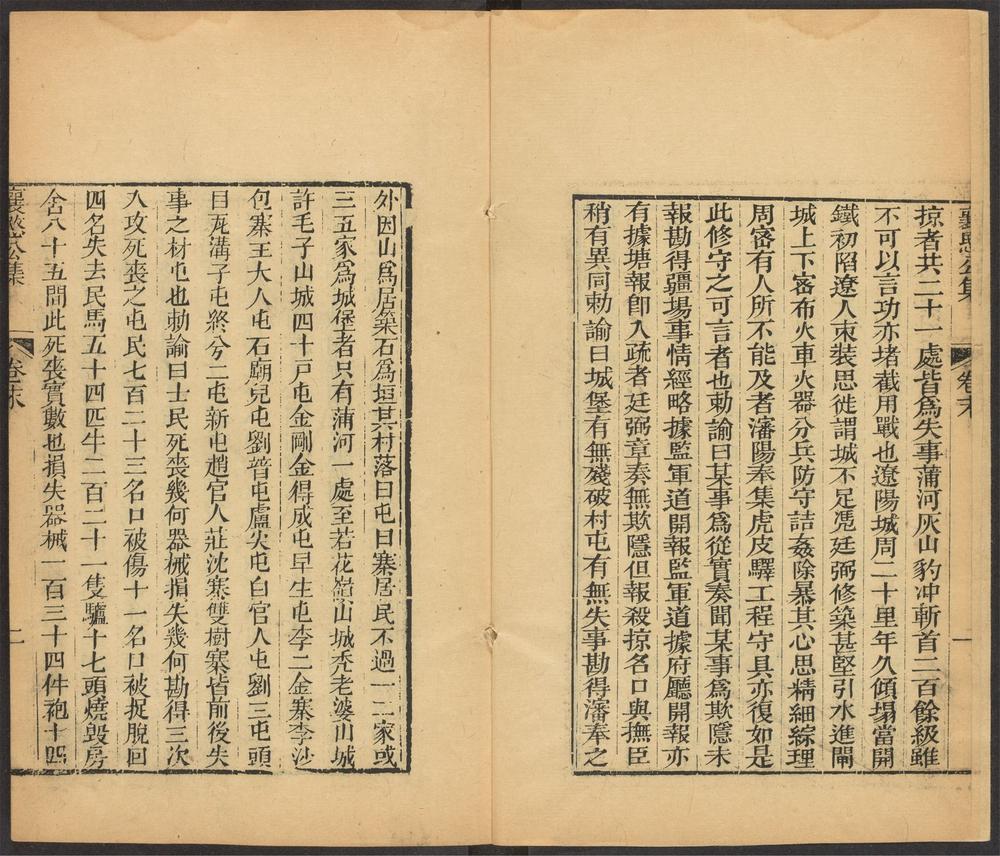 襄愍公集
卷末
一
掠者共二十一處皆爲失事蒲河灰山豹冲斬首二百餘級雖
不可以言功亦堵截用戰也遼陽城周二十里年久傾塌當開
鐵初陷遼人束裝思徙謂城不足凴廷弼修築甚堅引水進閘
城上下密布火車火器分兵防守詰姦除暴其心思精細綜理
周密有人所不能及者瀋陽奉集虎皮驛工程守具亦復如是
此修守之可言者也勅諭曰某事爲從實奏聞某事爲欺隱未
報勘得疆場事情經略據監軍道開報監軍道據府廳開報亦
有據塘報卽入疏者廷弼章奏無欺隱但報殺掠名口與撫臣
稍有異同勅諭曰城堡有無殘破村屯有無失事勘得瀋奉之
外因山爲居築石爲垣其村落曰屯曰寨居民不過一二家或
三五家爲城堡者只有蒲河一處至若花嶺山城禿老婆山城
許毛子山城四十戸屯金剛金得成屯早生屯李二金寨李沙
包寨王大人屯石廟兒屯劉普屯盧尖屯白官人屯劉三屯頭
目瓦溝子屯終兮二屯新屯趙官人莊沈寨雙樹寨皆前後失
事之材屯也勅諭曰士民死喪幾何器械損失幾何勘得三次
入攻死喪之屯民七百二十三名口被傷十一名口被捉脫回
四名失去民馬五十四匹牛二百二十一隻驢十七頭燒毀房
舍八十五間此死喪實數也損失器械一百三十四件袍十四
襄愍公集
卷末
二